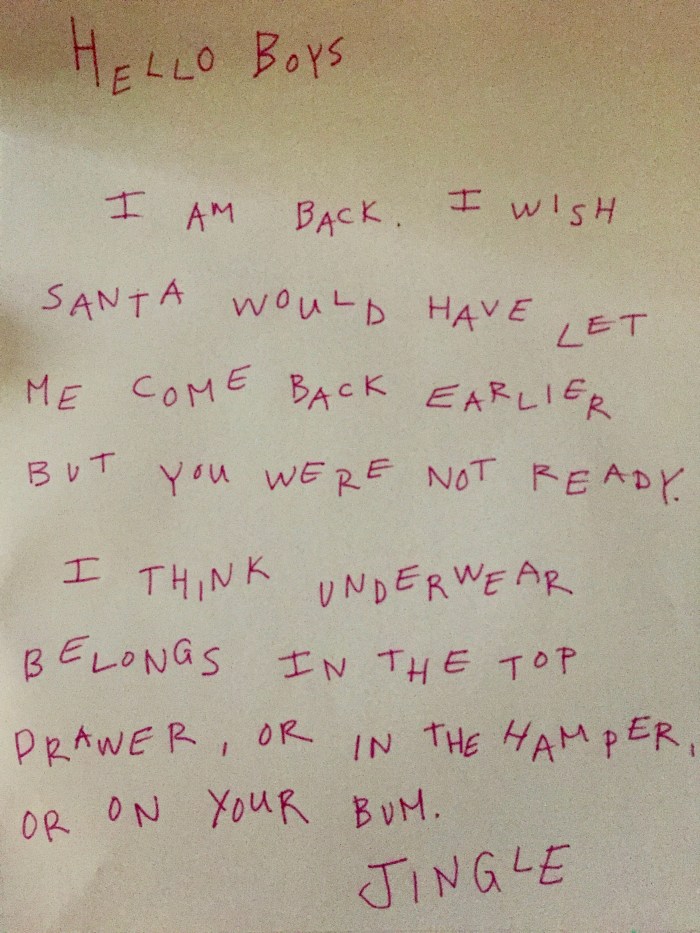 HELLO BOYS
I AM BACK. I WISH
SANTA WOULD HAVE LET
ME COME BACK EARLIER
BUT YOU WERE NOT READY.
I THINK UNDERWEAR
BELONGS IN THE TOP
DRAWER, OR IN THE HAMPER,
OR ON YOUR BUM.
JINGLE